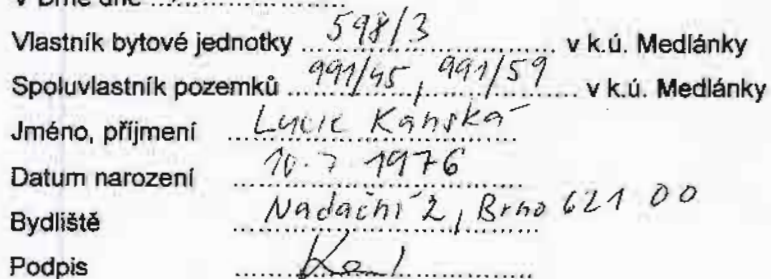 V Brně dne
Vlastník bytové jednotky 598/3 v k.ú. Medlánky
Spoluvlastník pozemků 991/45, 991/59 v k.ú. Medlánky
Jméno, příjmení Lucie Kaňská
Datum narození 10.7 1976
Bydliště Nadační 2, Brno 621 00
Podpis